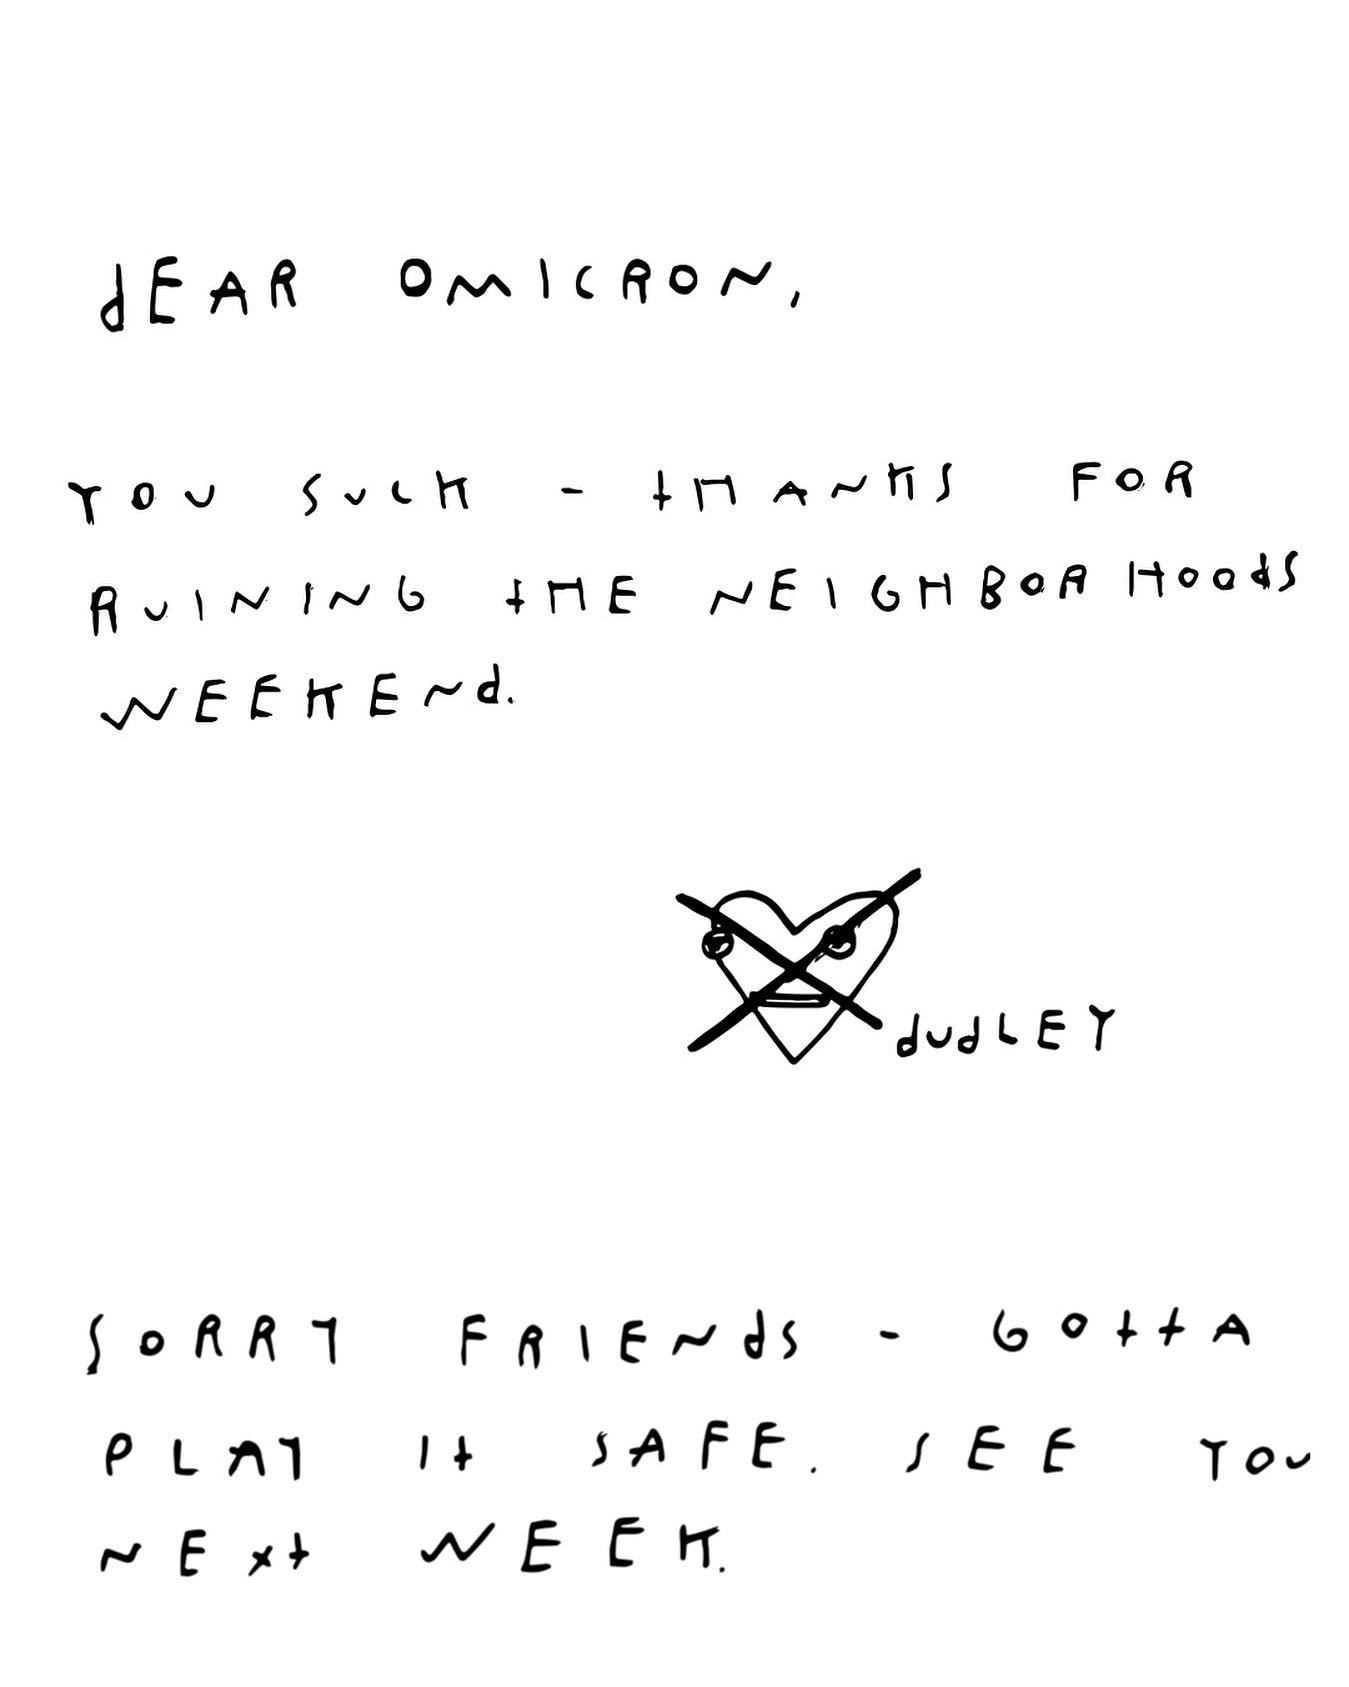 dEAR OMICRON,
YOU SUCK - tHANKS FOR
RUINING tHE NEIGHBORHOOdS
WEEKENd.
dUdLEY
SORRY FRIENdS - GOttA
PLAY It SAFE. SEE YOU
NEXt WEEK.